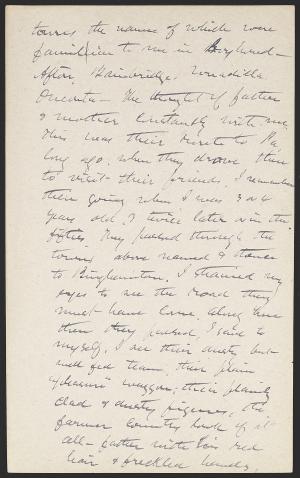 towns the name of which were
familiar to me in Boyhood –
Afton, Bainbridge, Unadilla
Oneonta – The thought of father
& mother constantly with me.
This was their route to Pa.
long ago, when they drove there
to visit their friends. I remember
their going when I was 3 or 4
years old, & twice later in the
fifties. They passed through the
towns above named & thence
to Binghamton, I strained my
eyes to see the road they
must have come, along here
then they passed, I said to
myself, I see their dusty but
well fed team, their plain
waggon; their plainly
clad & dusty figures, the
farmer country look of it
all – father with his red
hair & freckled hands,